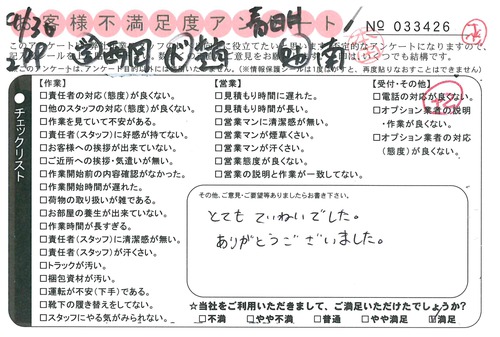 お客様不満足度アンケート
No 033426
9/30
チェックリスト
【作業】
□責任者の対応(態度)が良くない。
□他のスタッフの対応(態度)が良くない。
□作業を見ていて不安がある。
□責任者(スタッフ)に好感が持てない。
□お客様への挨拶が出来ていない。
□ご近所への挨拶・気遣いが無い。
□作業開始前の内容確認がなかった。
□作業開始時間が遅れた。
□荷物の取り扱いが雑である。
□お部屋の養生が出来ていない。
□作業時間が長すぎる。
□責任者(スタッフ)に清潔感が無い。
□責任者(スタッフ)が汗くさい。
□トラックが汚い。
□梱包資材が汚い。
□運転が不安(下手)である。
□靴下の履き替えをしてない。
□スタッフにやる気がみられない。
【営業】
□見積もり時間に遅れた。
□見積もり時間が長い。
□営業マンに清潔感が無い。
□営業マンが煙草くさい。
□営業マンが汗くさい。
□営業態度が良くない。
□営業の説明と作業が一致してない。
【受付・その他】
□電話の対応が良くない。
□オプション業者の説明
・作業が良くない。
□オプション業者の対応
(態度)が良くない。
その他、ご意見・ご要望等ありましたらお書き下さい。
とてもていねいでした。
ありがとうございました。
☆当社をご利用いただきまして、ご満足いただけたでしょうか?
□不満 □やや不満 □普通 □やや満足 ☑満足